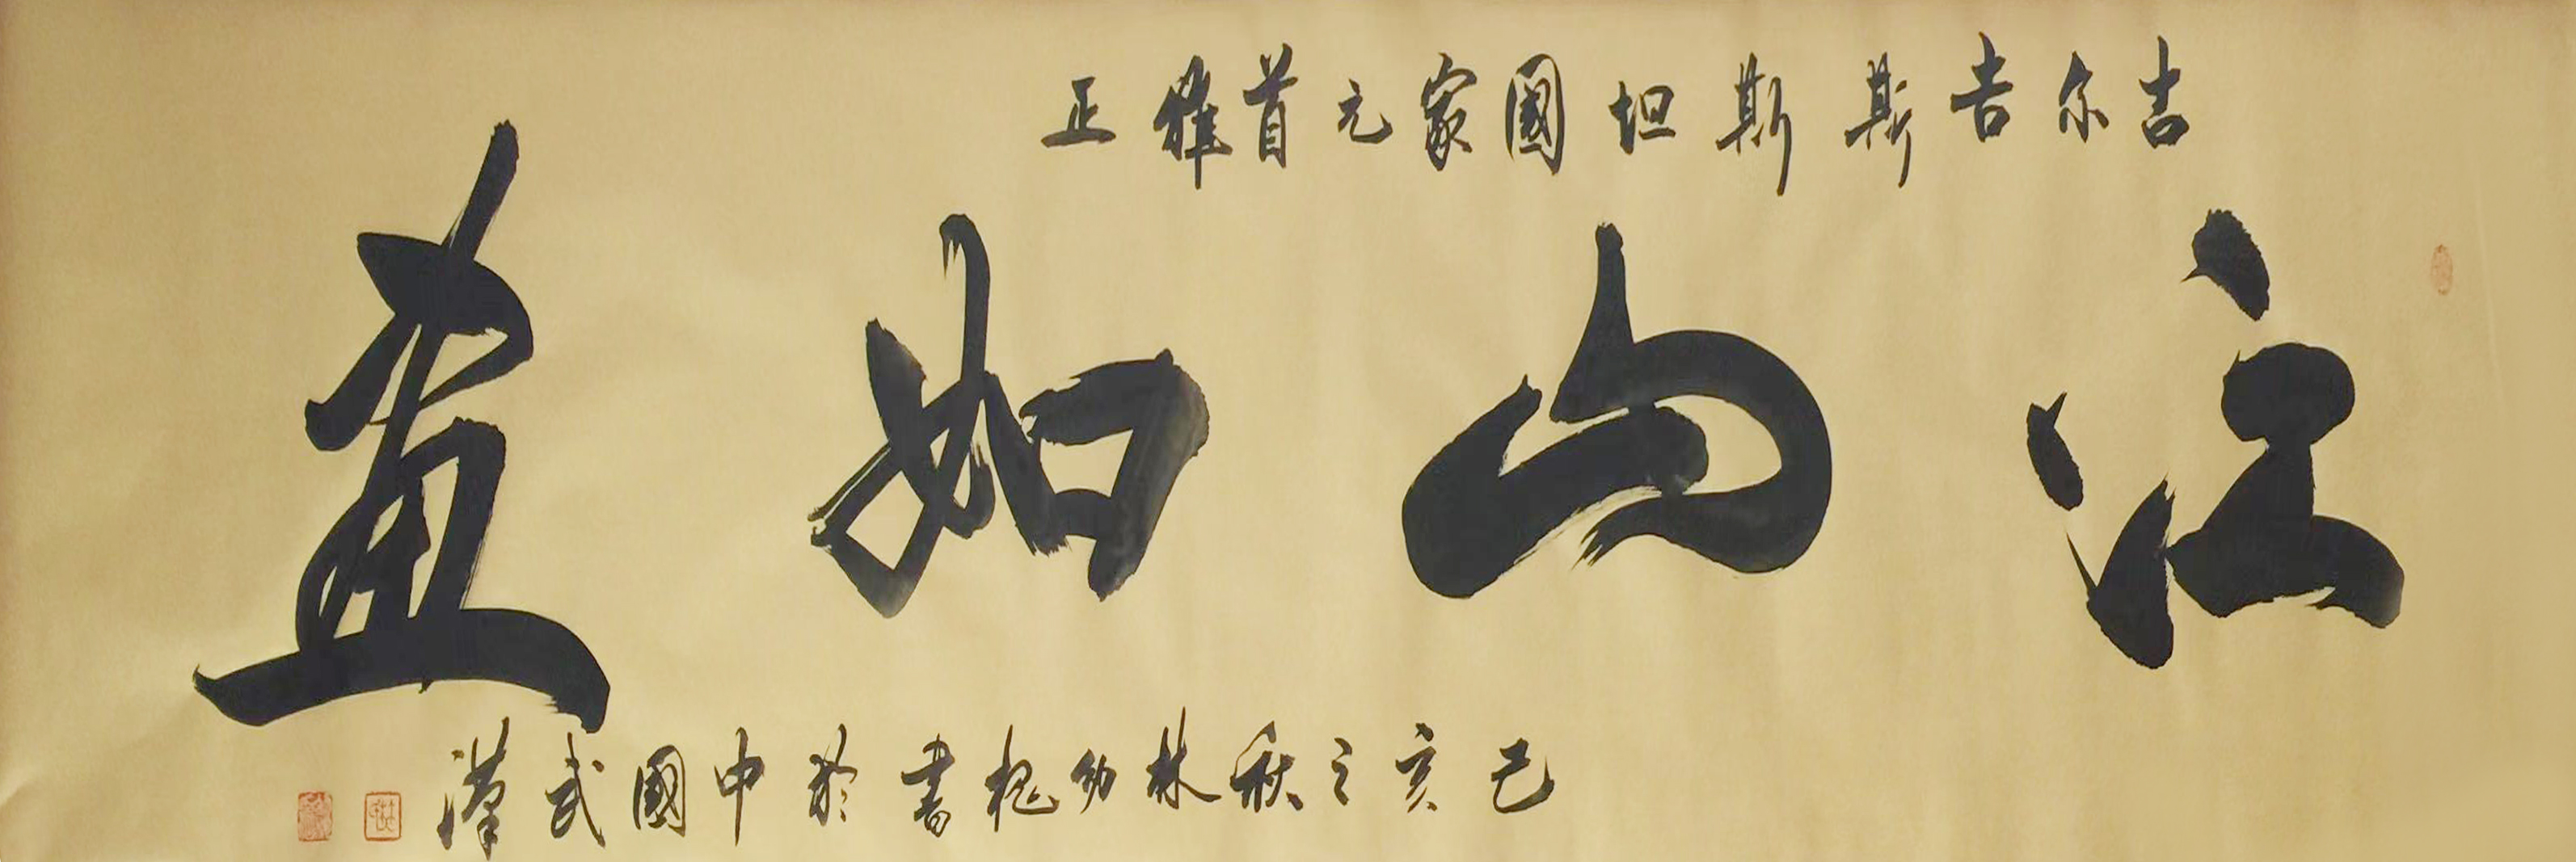 吉尔吉斯斯坦國家元首雅正
江山如畫
己亥之秋林幼槐書於中國武漢